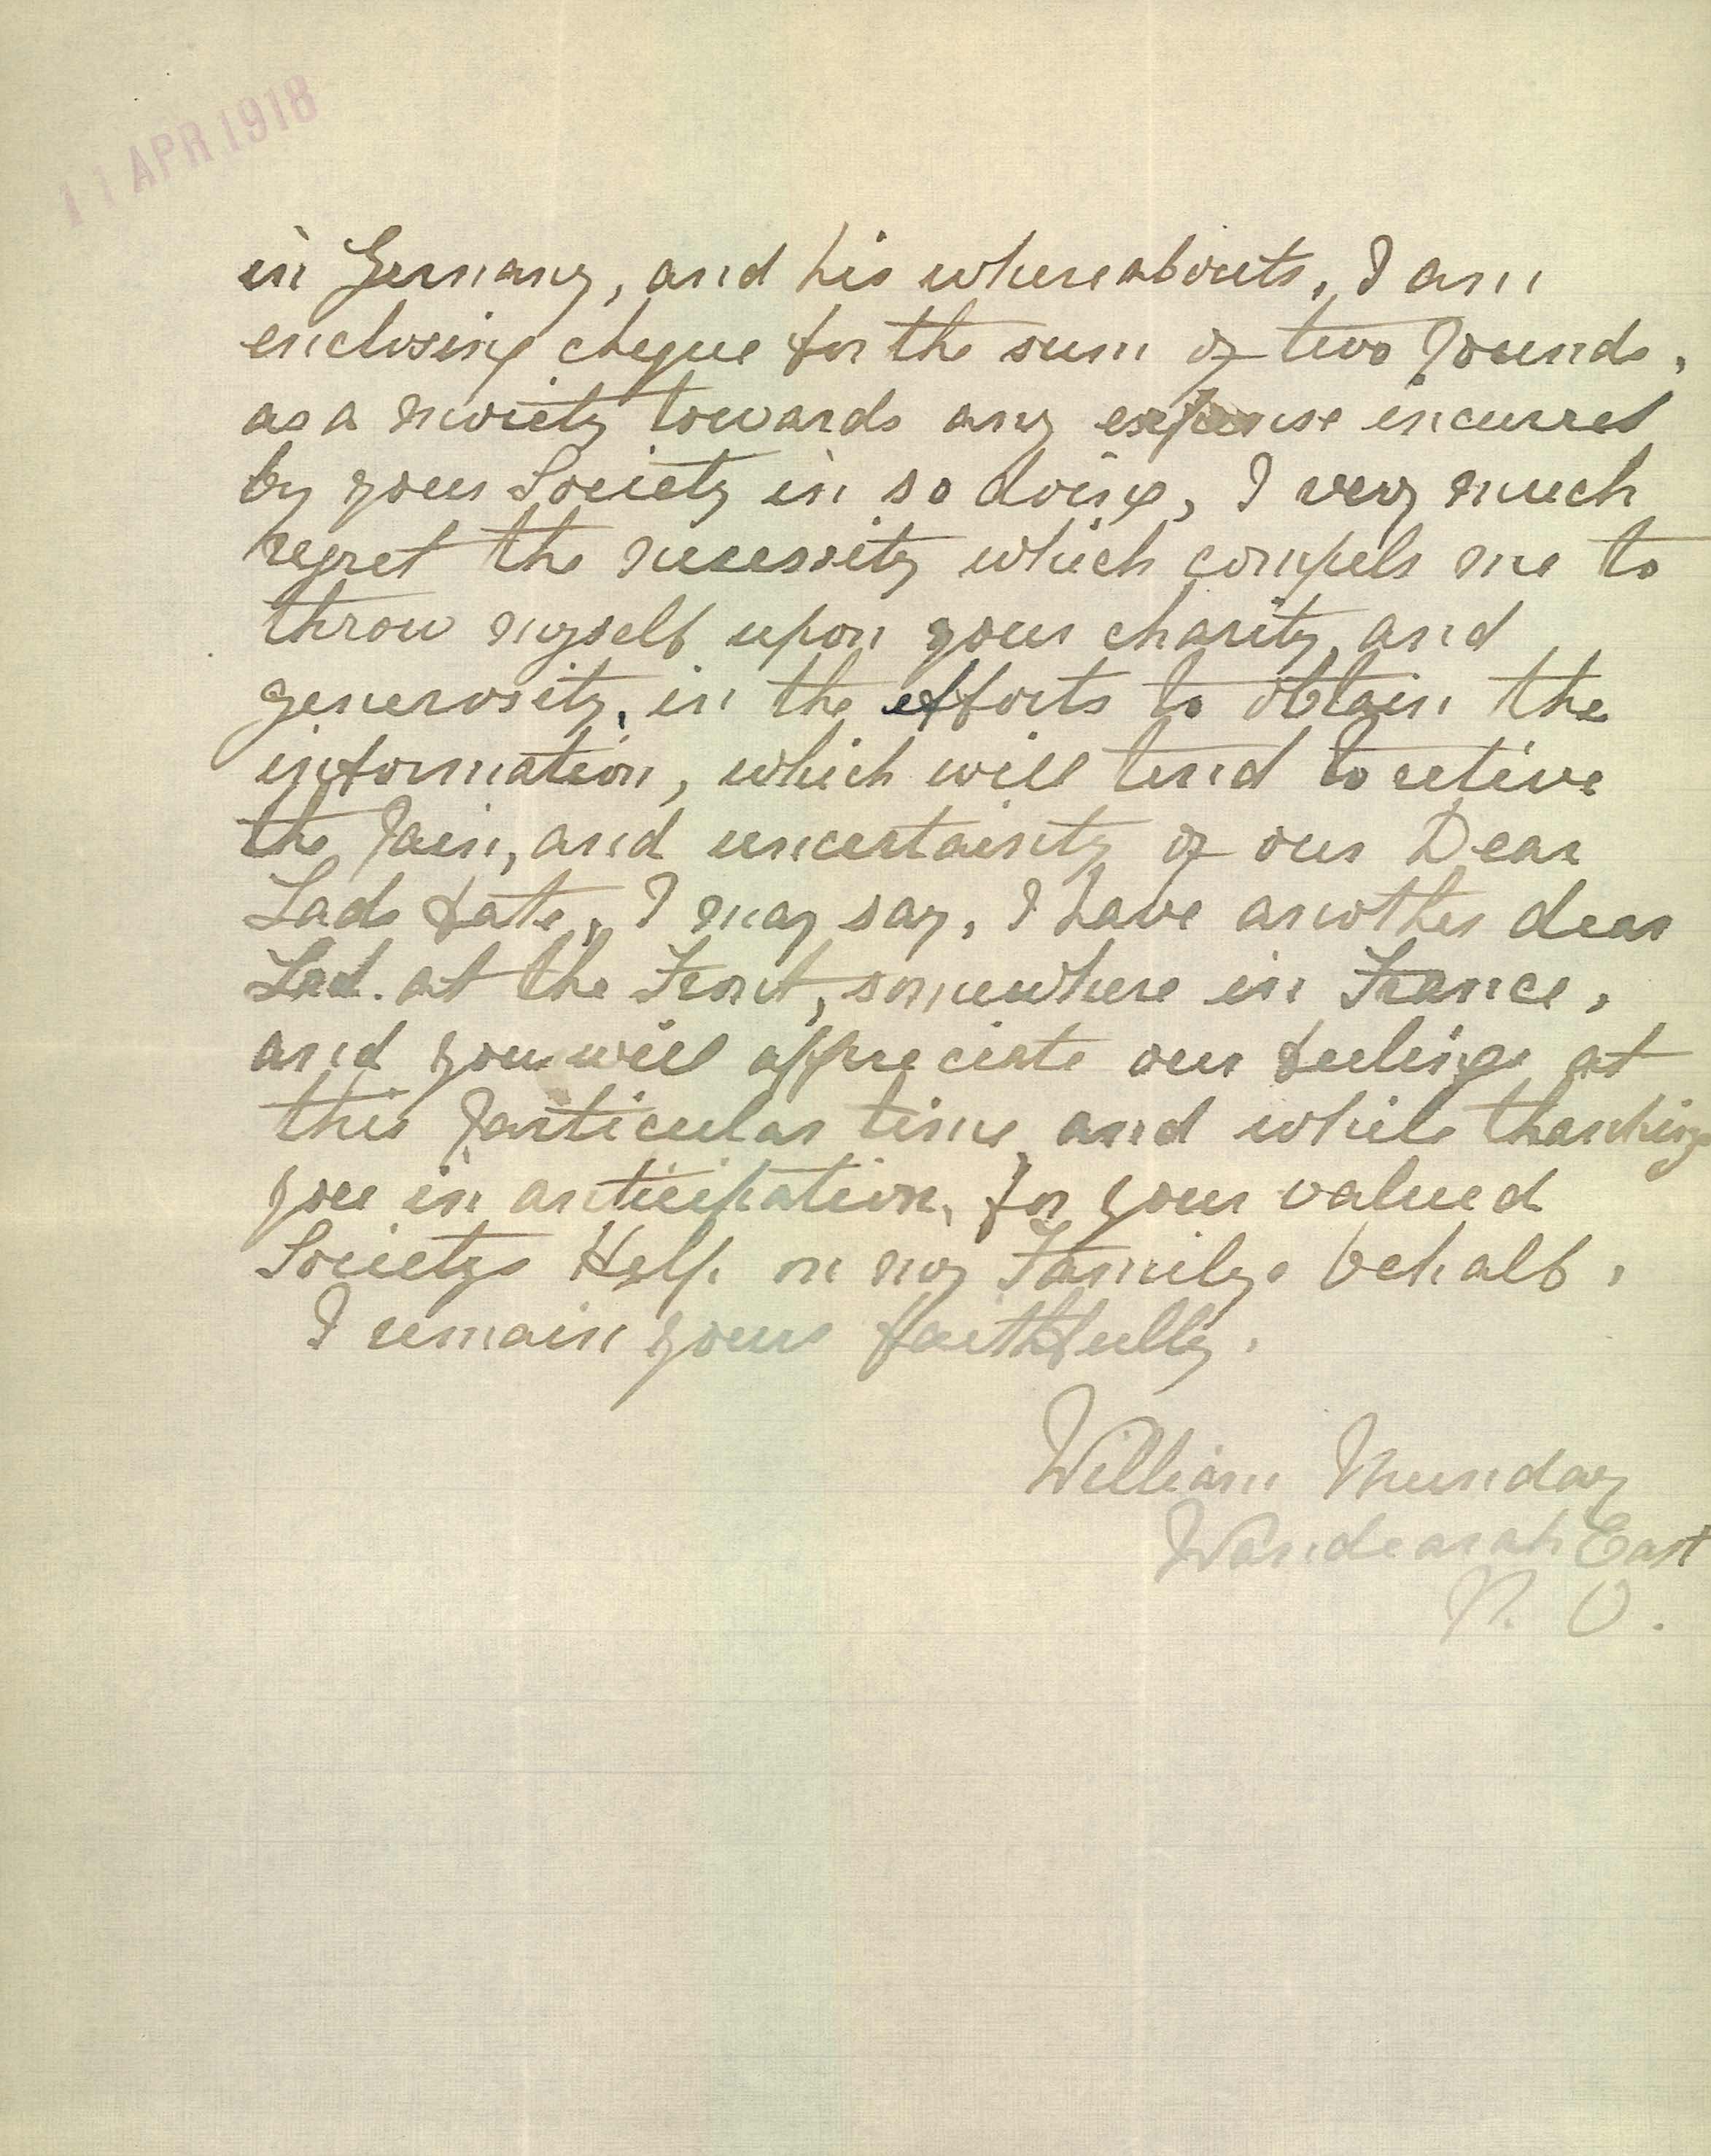 11 APR 1918
in Germany, and his whereabouts, I am
enclosing cheque for the sum of two Pounds,
as a moiety towards any expense incurred
by your Society in so doing, I very much
regret the necessity which compels me to
throw myself upon your charity and
generosity, in the efforts to obtain the
information, which will tend to relive
the Pain, and uncertainty of our Dear
Lads fate, I may say, I have another dear
Lad. at the Front, somewhere in France,
and you will appreciate our feelings at
this Particular time, and while thanking
you in anticipation, for your valued
Societys Help. on my Familys behalf,
I remain yours faithfully.
William Munday
Wandearah East
P. O.